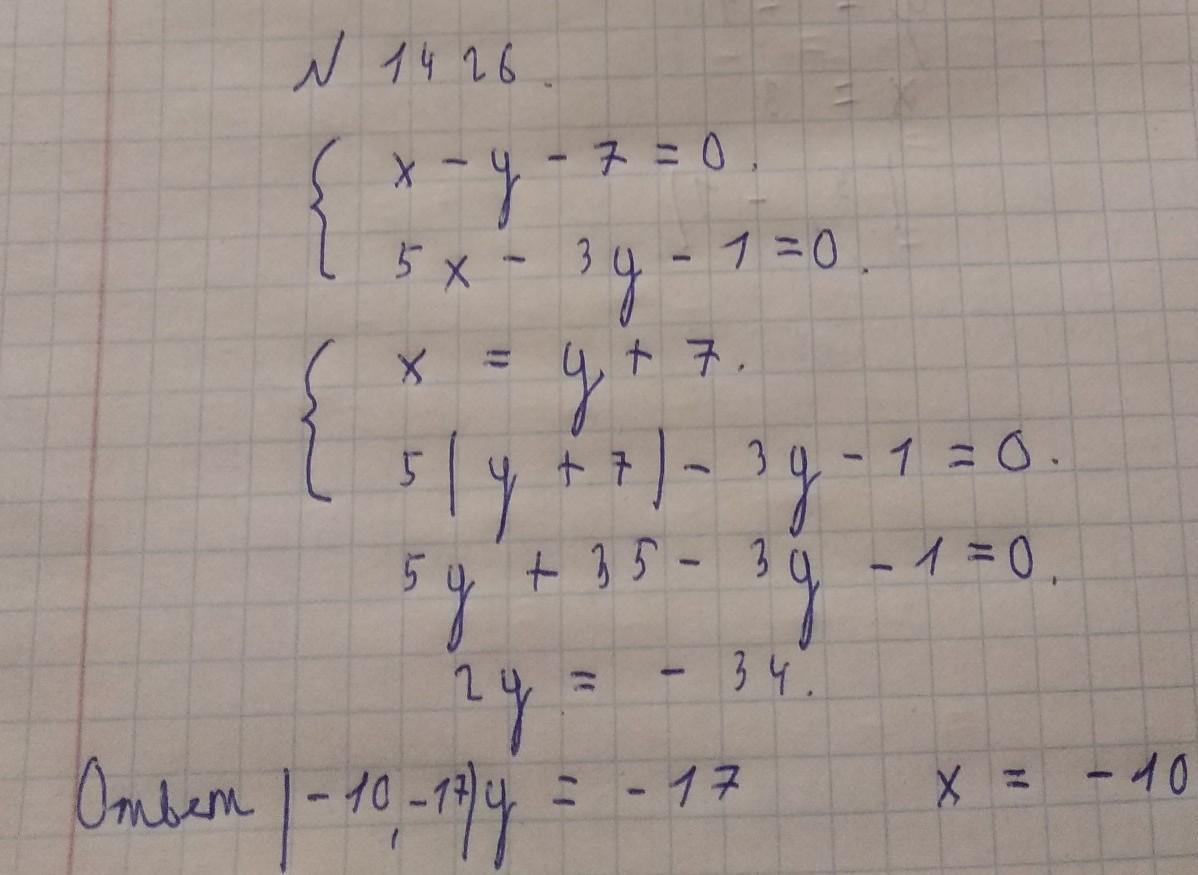 N 1426.
x - y - 7 = 0.
5x - 3y - 1 = 0.
x = y + 7.
5(y + 7) - 3y - 1 = 0.
5y + 35 - 3y - 1 = 0.
2y = - 34.
Ответ (-10, -17) y = - 17 x = - 10